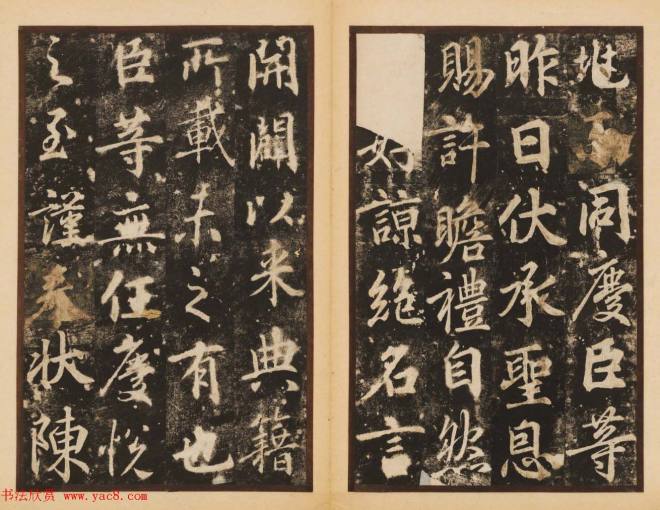 地
同慶臣等
昨日伏承聖恩
賜許瞻禮自然
妙諒絕名言
開闢以来典籍
所載未之有也
臣等無任慶悅
之至謹奉狀陳
书法欣赏 www.yac8.com